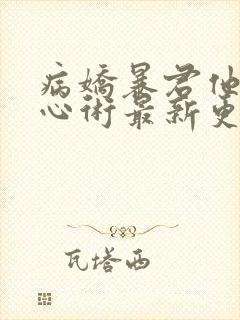 病嬌暴君他
心術最新更
瓦塔西